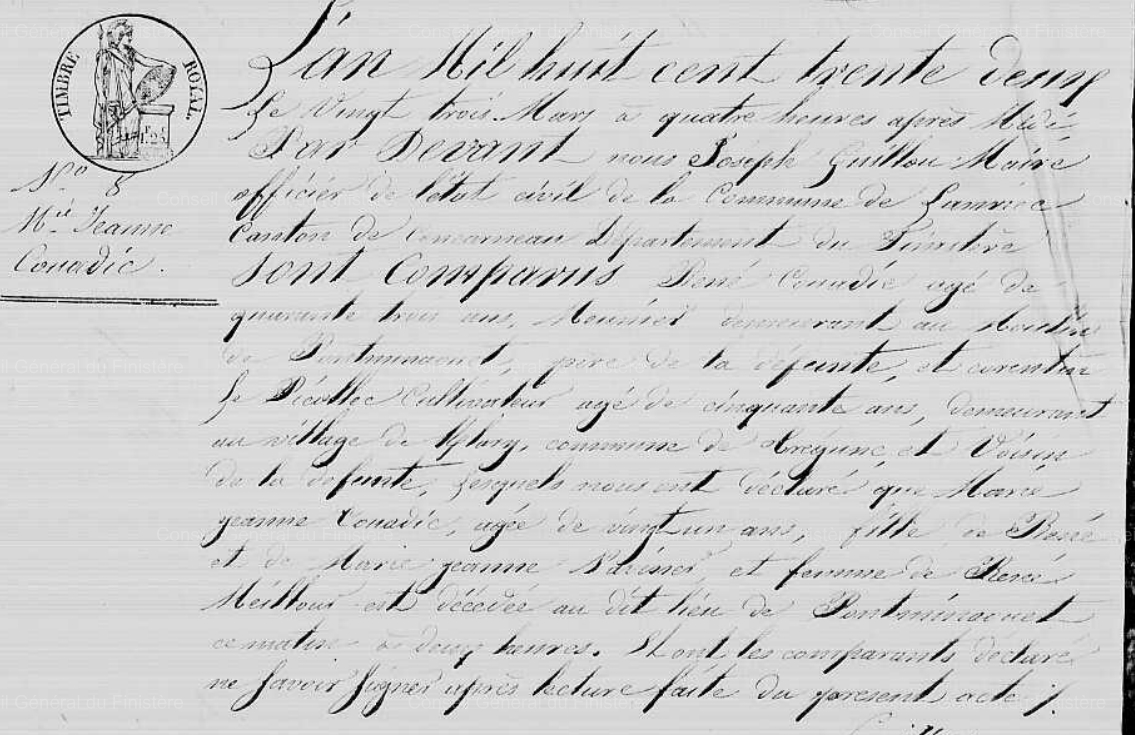 TIMBRE ROYAL
N.º 8
M.ie Jeanne
Couadic.
L'an Mil huit cent trente deux
le Vingt trois Mars à quatre heures après Midi
Par Devant nous Joseph Guillou Maire
officier de l'état civil de la Commune de Lanriec
Canton de Concarneau Département du Finistère
Sont Comparus René Couadic agé de
quarante trois ans, Meunier demeurant au Moulin
de Pontminaouet, père de la défunte, et corentin
le Cultivateur agé de cinquante ans, demeurant
au village de commune de Trégunc, et Voisin
de la défunte, lesquels nous ont déclaré que Marie
jeanne Couadic, agée de vingt un ans, fille de René
et de Marie jeanne et femme de
Meillour est décédée au dit lieu de Pontminaouet
ce matin à deux heures. Et ont les comparants déclaré
ne savoir signer après lecture faite du present acte ./.